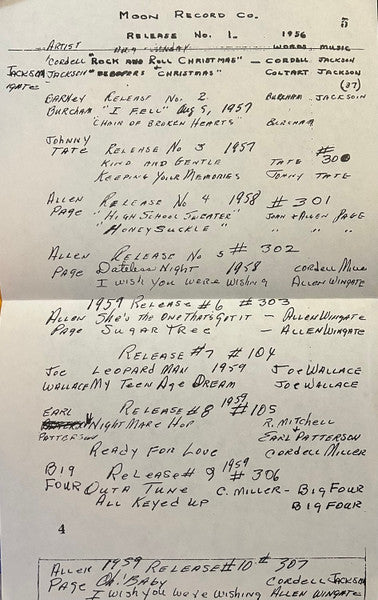 MOON RECORD CO. 5
RELEASE No. 1 1956
ARTIST WORDS, MUSIC
CORDELL "ROCK AND ROLL CHRISTMAS" - CORDELL JACKSON
JACKSON "BEBOPERS CHRISTMAS" COLTART JACKSON
BARNEY RELEASE No. 2 BURCHAM JACKSON
BURCHAM "I FELL" Aug 5, 1957
"CHAIN OF BROKEN HEARTS" BURCHAM
JOHNNY
TATE RELEASE No 3 1957 #
KIND AND GENTLE TATE 300
KEEPING YOUR MEMORIES JOHNY TATE
ALLEN RELEASE No 4 1958 #301
PAGE "HIGH SCHOOL SWEATER" ALLEN PAGE
"HONEYSUCKLE" " " "
ALLEN RELEASE No 5 #302
PAGE Dateless Night 1958 CORDELL
I wish you were wishing ALLEN WINGATE
1959 RELEASE #6 #303
ALLEN She's The One That's Got it - ALLEN WINGATE
PAGE SUGAR TREE - ALLEN WINGATE
RELEASE #7 #104
JOE LEOPARD MAN 1959 JOE WALLACE
WALLACE MY TEEN AGE DREAM JOE WALLACE
EARL RELEASE #8 1959 #105
NIGHT MARE HOP R. MITCHELL
PATTERSON EARL PATTERSON
READY FOR LOVE CORDELL MILLER
BIG RELEASE # 9 1959 #306
FOUR OUTA TUNE C. MILLER - BIG FOUR
ALL KEYED UP BIG FOUR
4
ALLEN 1959 RELEASE #10 # 307
PAGE OH! BABY CORDELL JACKSON
I wish you were wishing ALLEN WINGATE